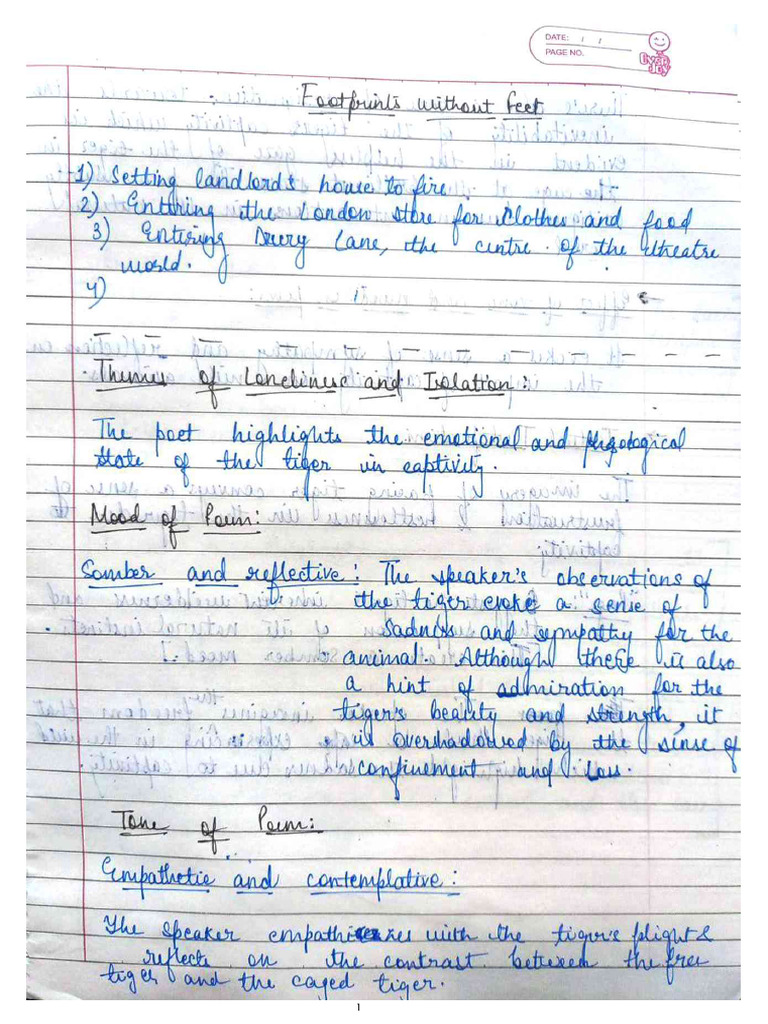 DATE: / /
PAGE NO.
Footprints without feet
1) Setting landlord's house to fire.
2) Entering the London store for clothes and food
3) Entering Drury Lane, the centre of the theatre
world.
4)
Themes of Loneliness and Isolation:
The poet highlights the emotional and
state of the tiger in captivity.
Mood of Poem:
Somber and reflective: The speaker's observations of
the tiger evoke a sense of
sadness and sympathy for the
animal. Although there is also
a hint of admiration for the
tiger's beauty and strength, it
is overshadowed by the sense of
confinement and loss.
Tone of Poem:
Empathetic and contemplative:
The speaker empathizes with the tiger's plight &
reflects on the contrast between the free
tiger and the caged tiger.
1